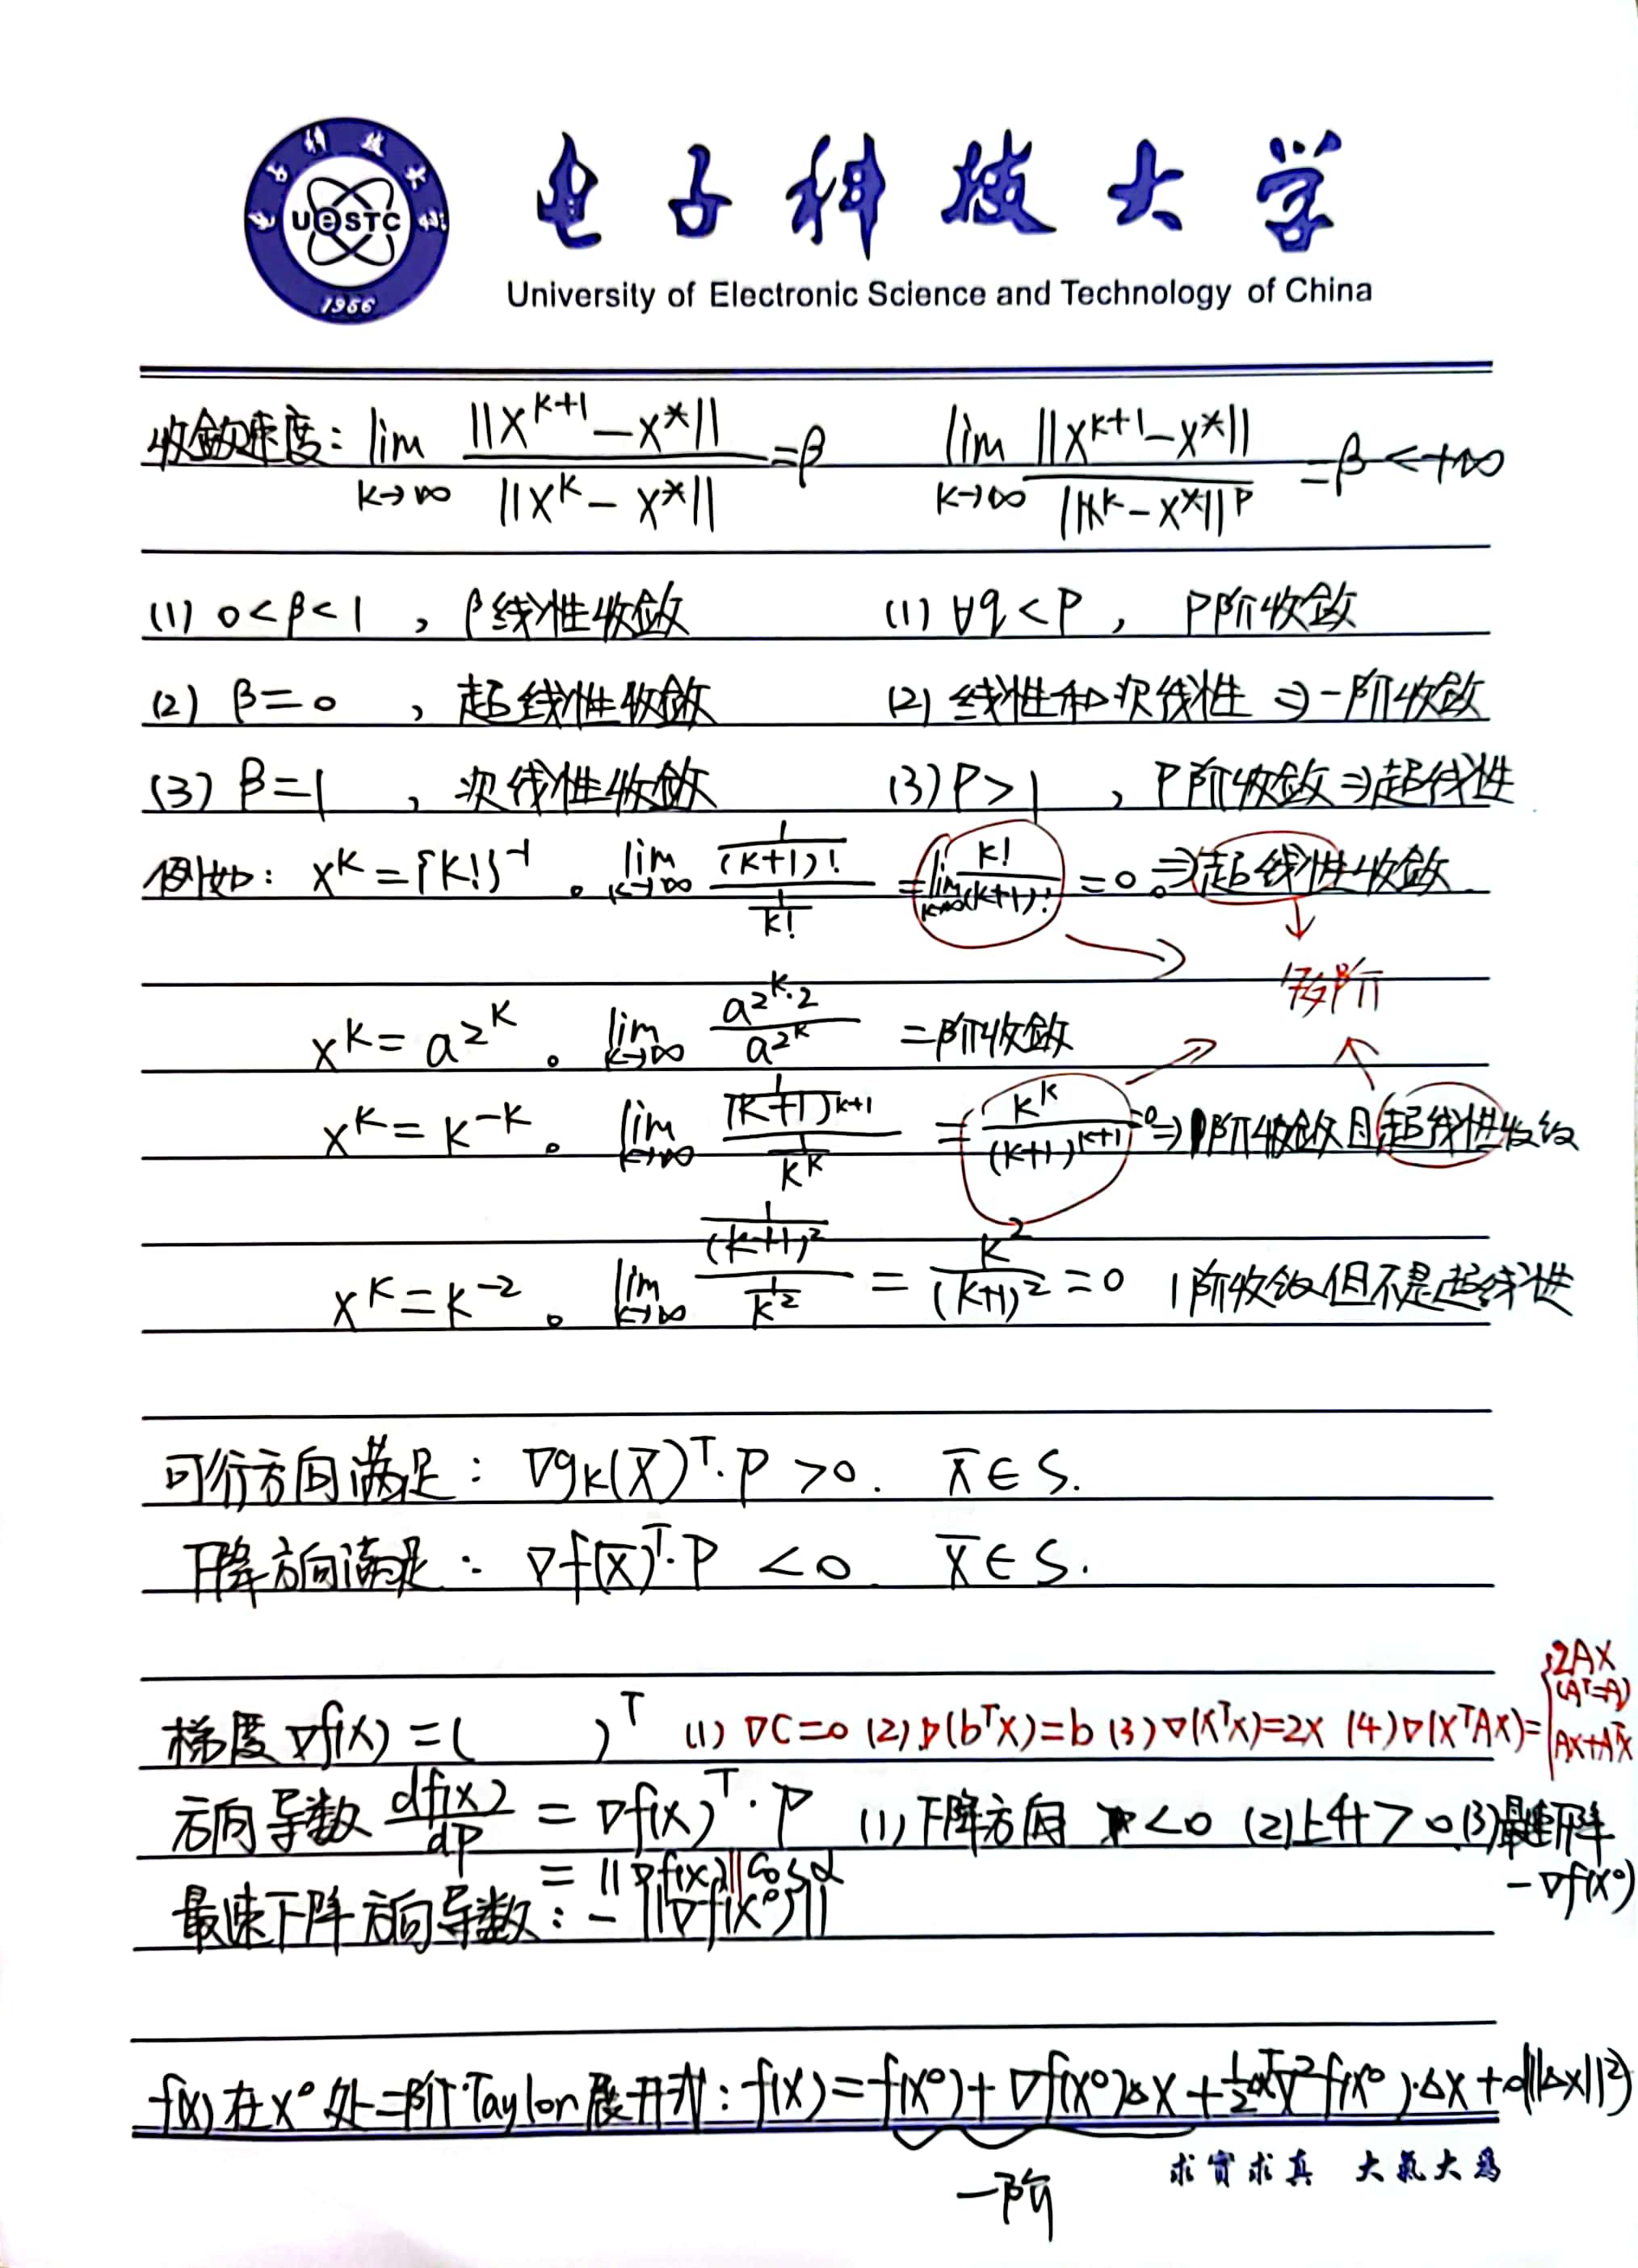 电子科技大学
UeSTC
1956
University of Electronic Science and Technology of China
收敛速度: lim k→∞ ||x^{k+1} - x*|| / ||x^k - x*|| = β    lim k→∞ ||x^{k+1} - x*|| / ||x^k - x*||^p = β < +∞
(1) 0<β<1 , β线性收敛    (1) ∀q<p , P阶收敛
(2) β=0 , 超线性收敛    (2) 线性和次线性 ⇒ 一阶收敛
(3) β=1 , 次线性收敛    (3) P>1 , P阶收敛⇒超线性
例如: x^k = {k!}^{-1} 。 lim k→∞ (1/(k+1)!) / (1/k!) = lim k→∞ k!/(k+1)! = 0 。⇒超线性收敛
x^k = a^{2^k} 。 lim k→∞ a^{2^k·2} / a^{2^k} 二阶收敛
x^k = k^{-k} 。 lim k→∞ (1/(k+1)^{k+1}) / (1/k^k) = k^k/(k+1)^{k+1} = 0 ⇒ 1阶收敛且超线性收敛
x^k = k^{-2} 。 lim k→∞ (1/(k+1)^2) / (1/k^2) = k^2/(k+1)^2 = 0 1阶收敛但不是超线性
可行方向满足: ∇g_k(x̄)^T·P >0. x̄∈S.
下降方向满足: ∇f(x̄)^T·P <0. x̄∈S.
梯度∇f(x) = (    )^T (1) ∇C=0 (2) ∇(b^Tx)=b (3) ∇(x^Tx)=2x (4) ∇(x^TAx)= { 2Ax (A^T=A) Ax+A^Tx
方向导数 df(x)/dp = ∇f(x)^T·P (1) 下降方向 <0 (2)上升>0 (3)最速下降 -∇f(x⁰)
= ||∇f(x)||cosα
最速下降方向导数: -||∇f(x⁰)||
f(x)在x⁰处二阶Taylor展开式: f(x)=f(x⁰)+∇f(x⁰)Δx+½Δx^T∇²f(x⁰)·Δx+o(||Δx||²)
一阶
求实求真 大气大为